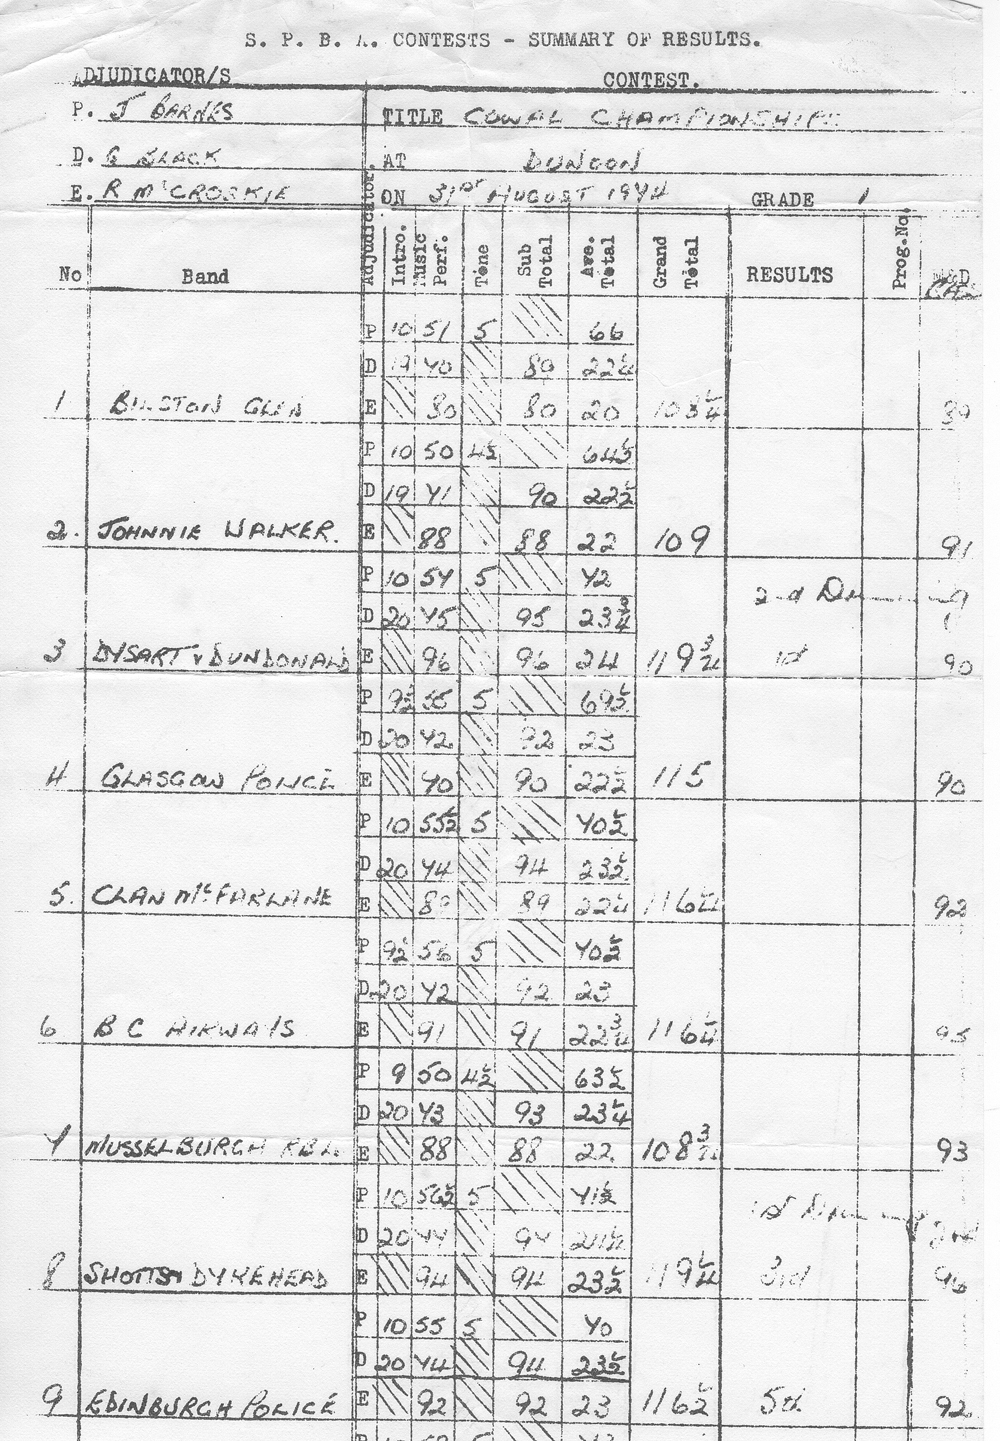 S. P. B. A. CONTESTS - SUMMARY OF RESULTS.
ADJUDICATOR/S CONTEST.
P. J BARNES TITLE COWAL CHAMPIONSHIPS
D. G BLACK AT DUNOON
E. R McCROSKIE ON 31ST AUGUST 1974 GRADE 1
No Band Adjudicator. Intro. Music Perf. Tone Sub Total Ave. Total Grand Total RESULTS Prog.No.
P 10 51 5 66
D 19 70 89 22¼
1 BILSTON GLEN E 80 80 20 108¼ 89
P 10 50 4½ 64½
D 19 71 90 22½
2. JOHNNIE WALKER. E 88 88 22 109 91
P 10 57 5 72
2nd Drumming
D 20 75 95 23¾
3 DYSART & DUNDONALD E 96 96 24 119¾ 1st 90
P 9½ 55 5 69½
D 20 72 92 23
4 GLASGOW POLICE E 90 90 22½ 115 90
P 10 55½ 5 70½
D 20 74 94 23½
5. CLAN McFARLANE E 89 89 22¼ 116¼ 92
P 9½ 56 5 70½
D 20 72 92 23
6 B C AIRWAYS E 91 91 22¾ 116¼ 95
P 9 50 4½ 63½
D 20 73 93 23¼
7 MUSSELBURGH RBL E 88 88 22 108¾ 93
P 10 56½ 5 71½
1st Drumming
D 20 77 97 24¼
8 SHOTTS & DYKEHEAD E 94 94 23½ 119¼ 3rd 96
P 10 55 5 70
D 20 74 94 23½
9 EDINBURGH POLICE E 92 92 23 116½ 5th 92